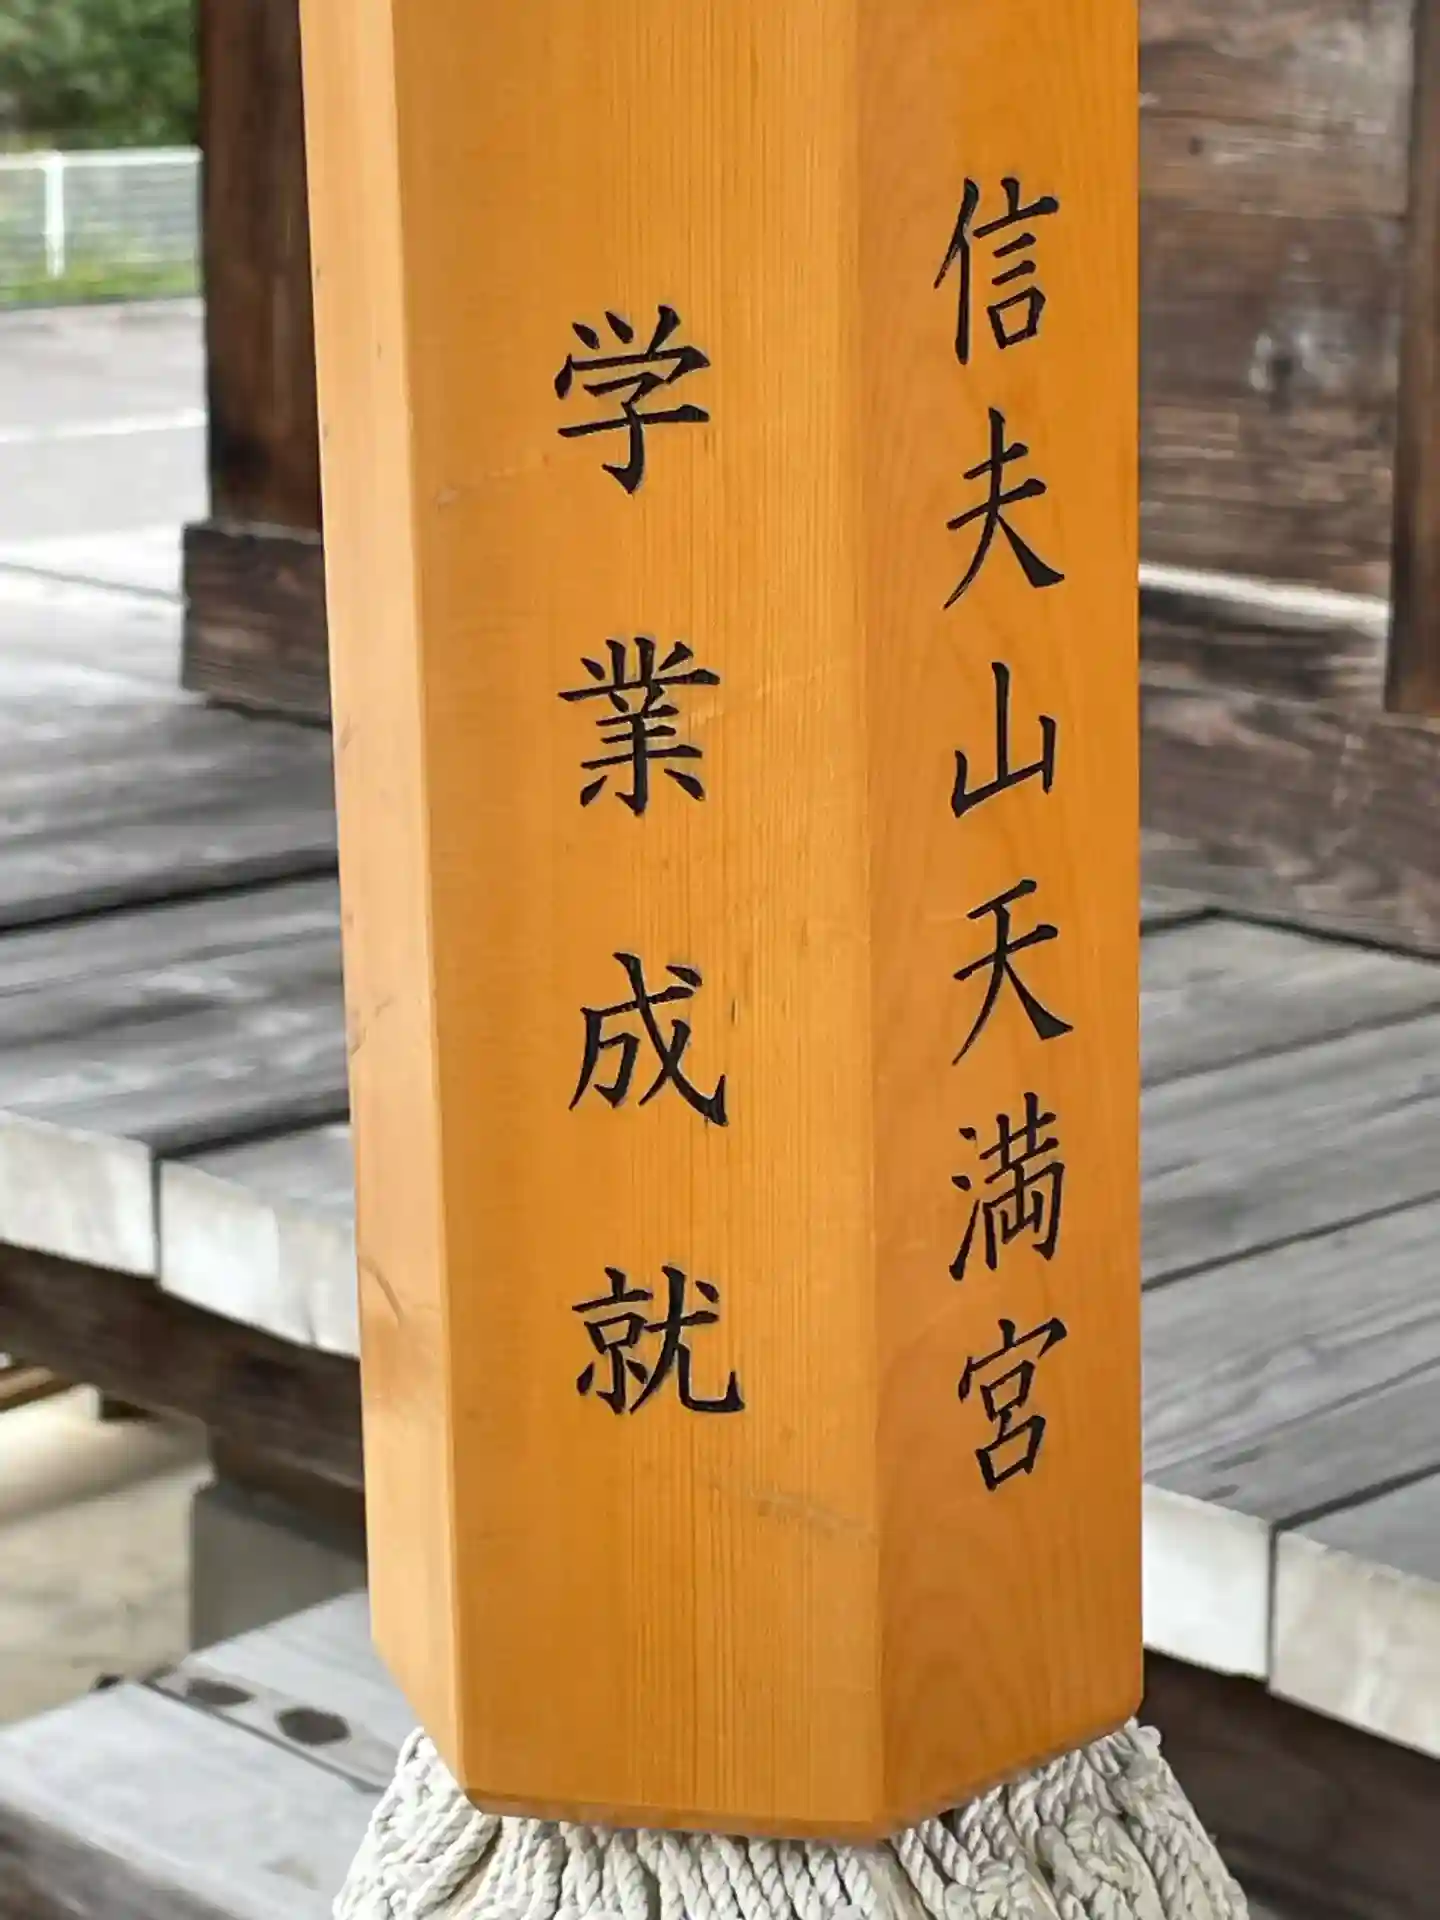 信夫山天満宮
学業成就